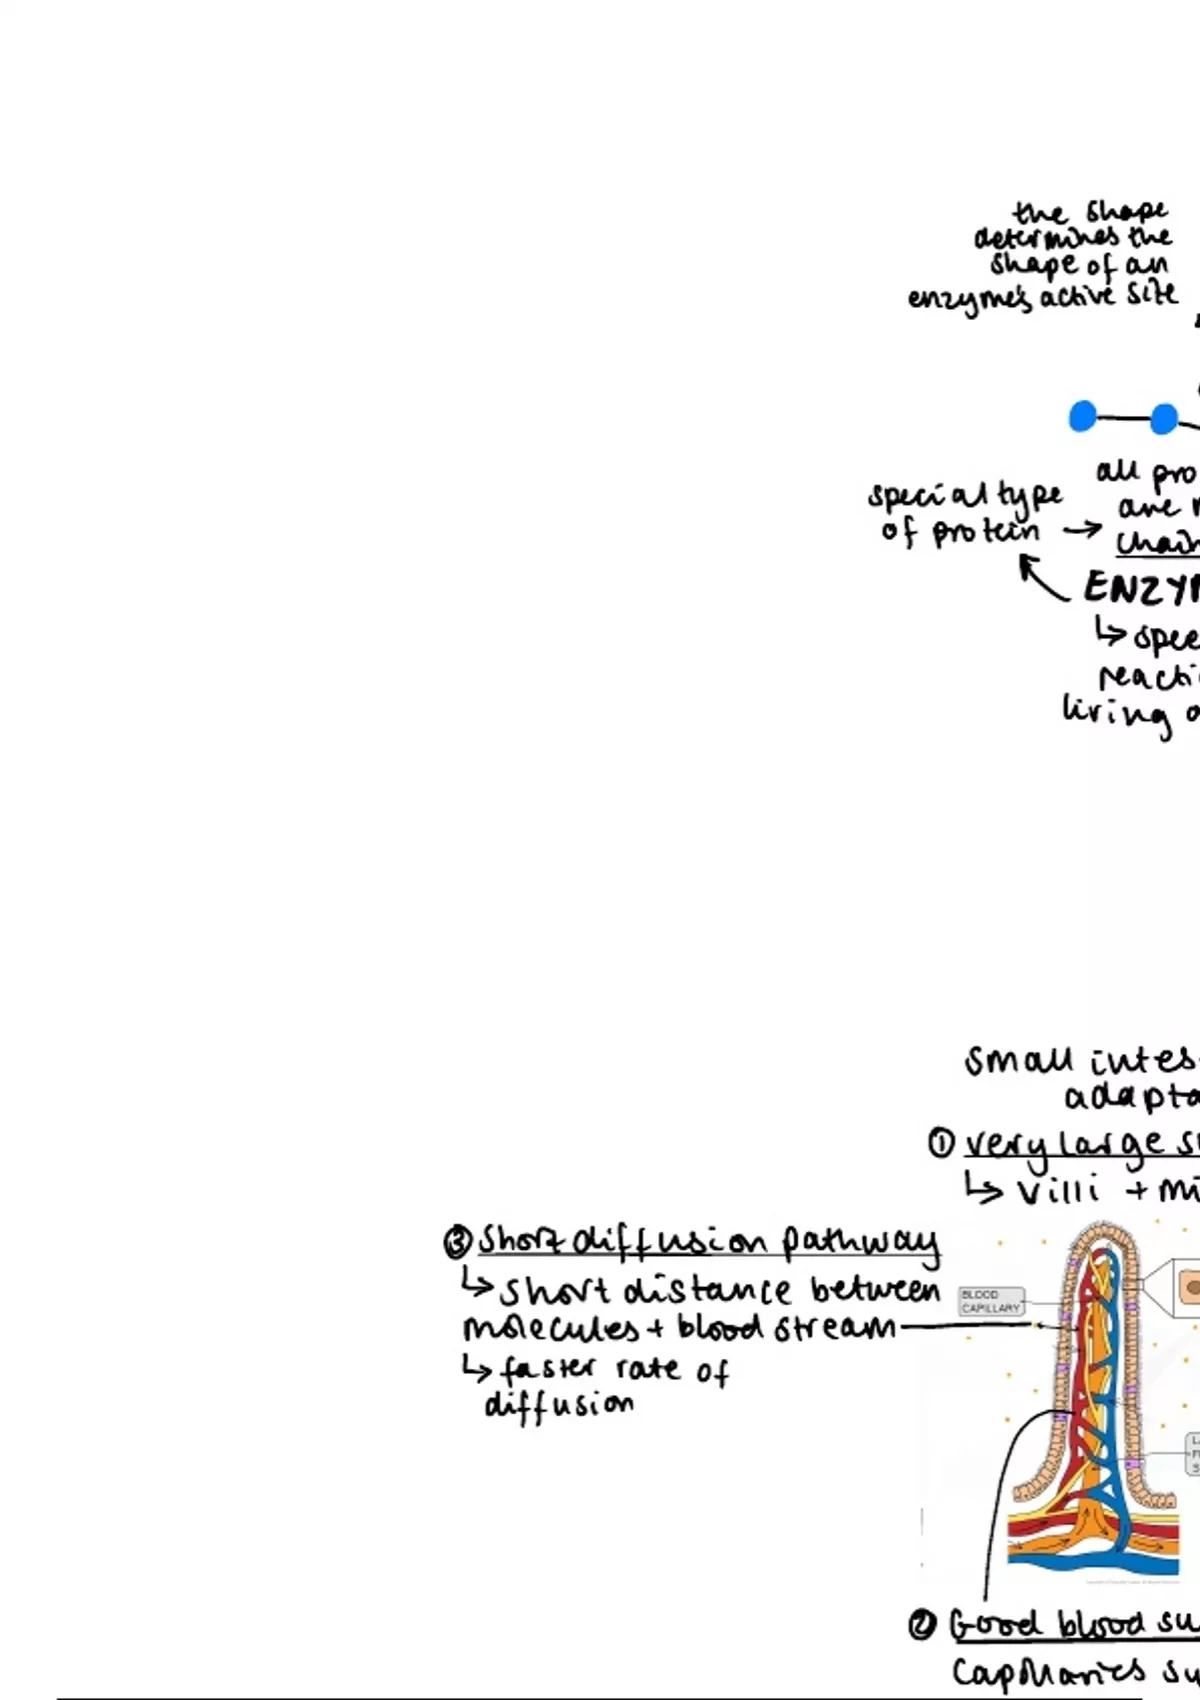 the shape
determines the
shape of an
enzyme's active site
special type
of protein →
all pro
are
chain
ENZY
↳ spee
reacti
living
small intes
adapta
① very large s
↳ villi + mi
③ short diffusion pathway
↳ short distance between
molecules + blood stream
↳ faster rate of
diffusion
BLOOD
CAPILLARY
② Good blood su
capillaries su